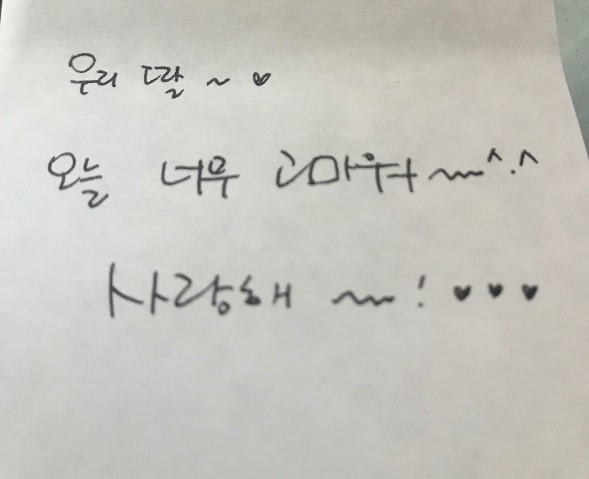 우리 딸~♥
오늘 너무 고마워~~^.^
사랑해 ~~! ♥♥♥